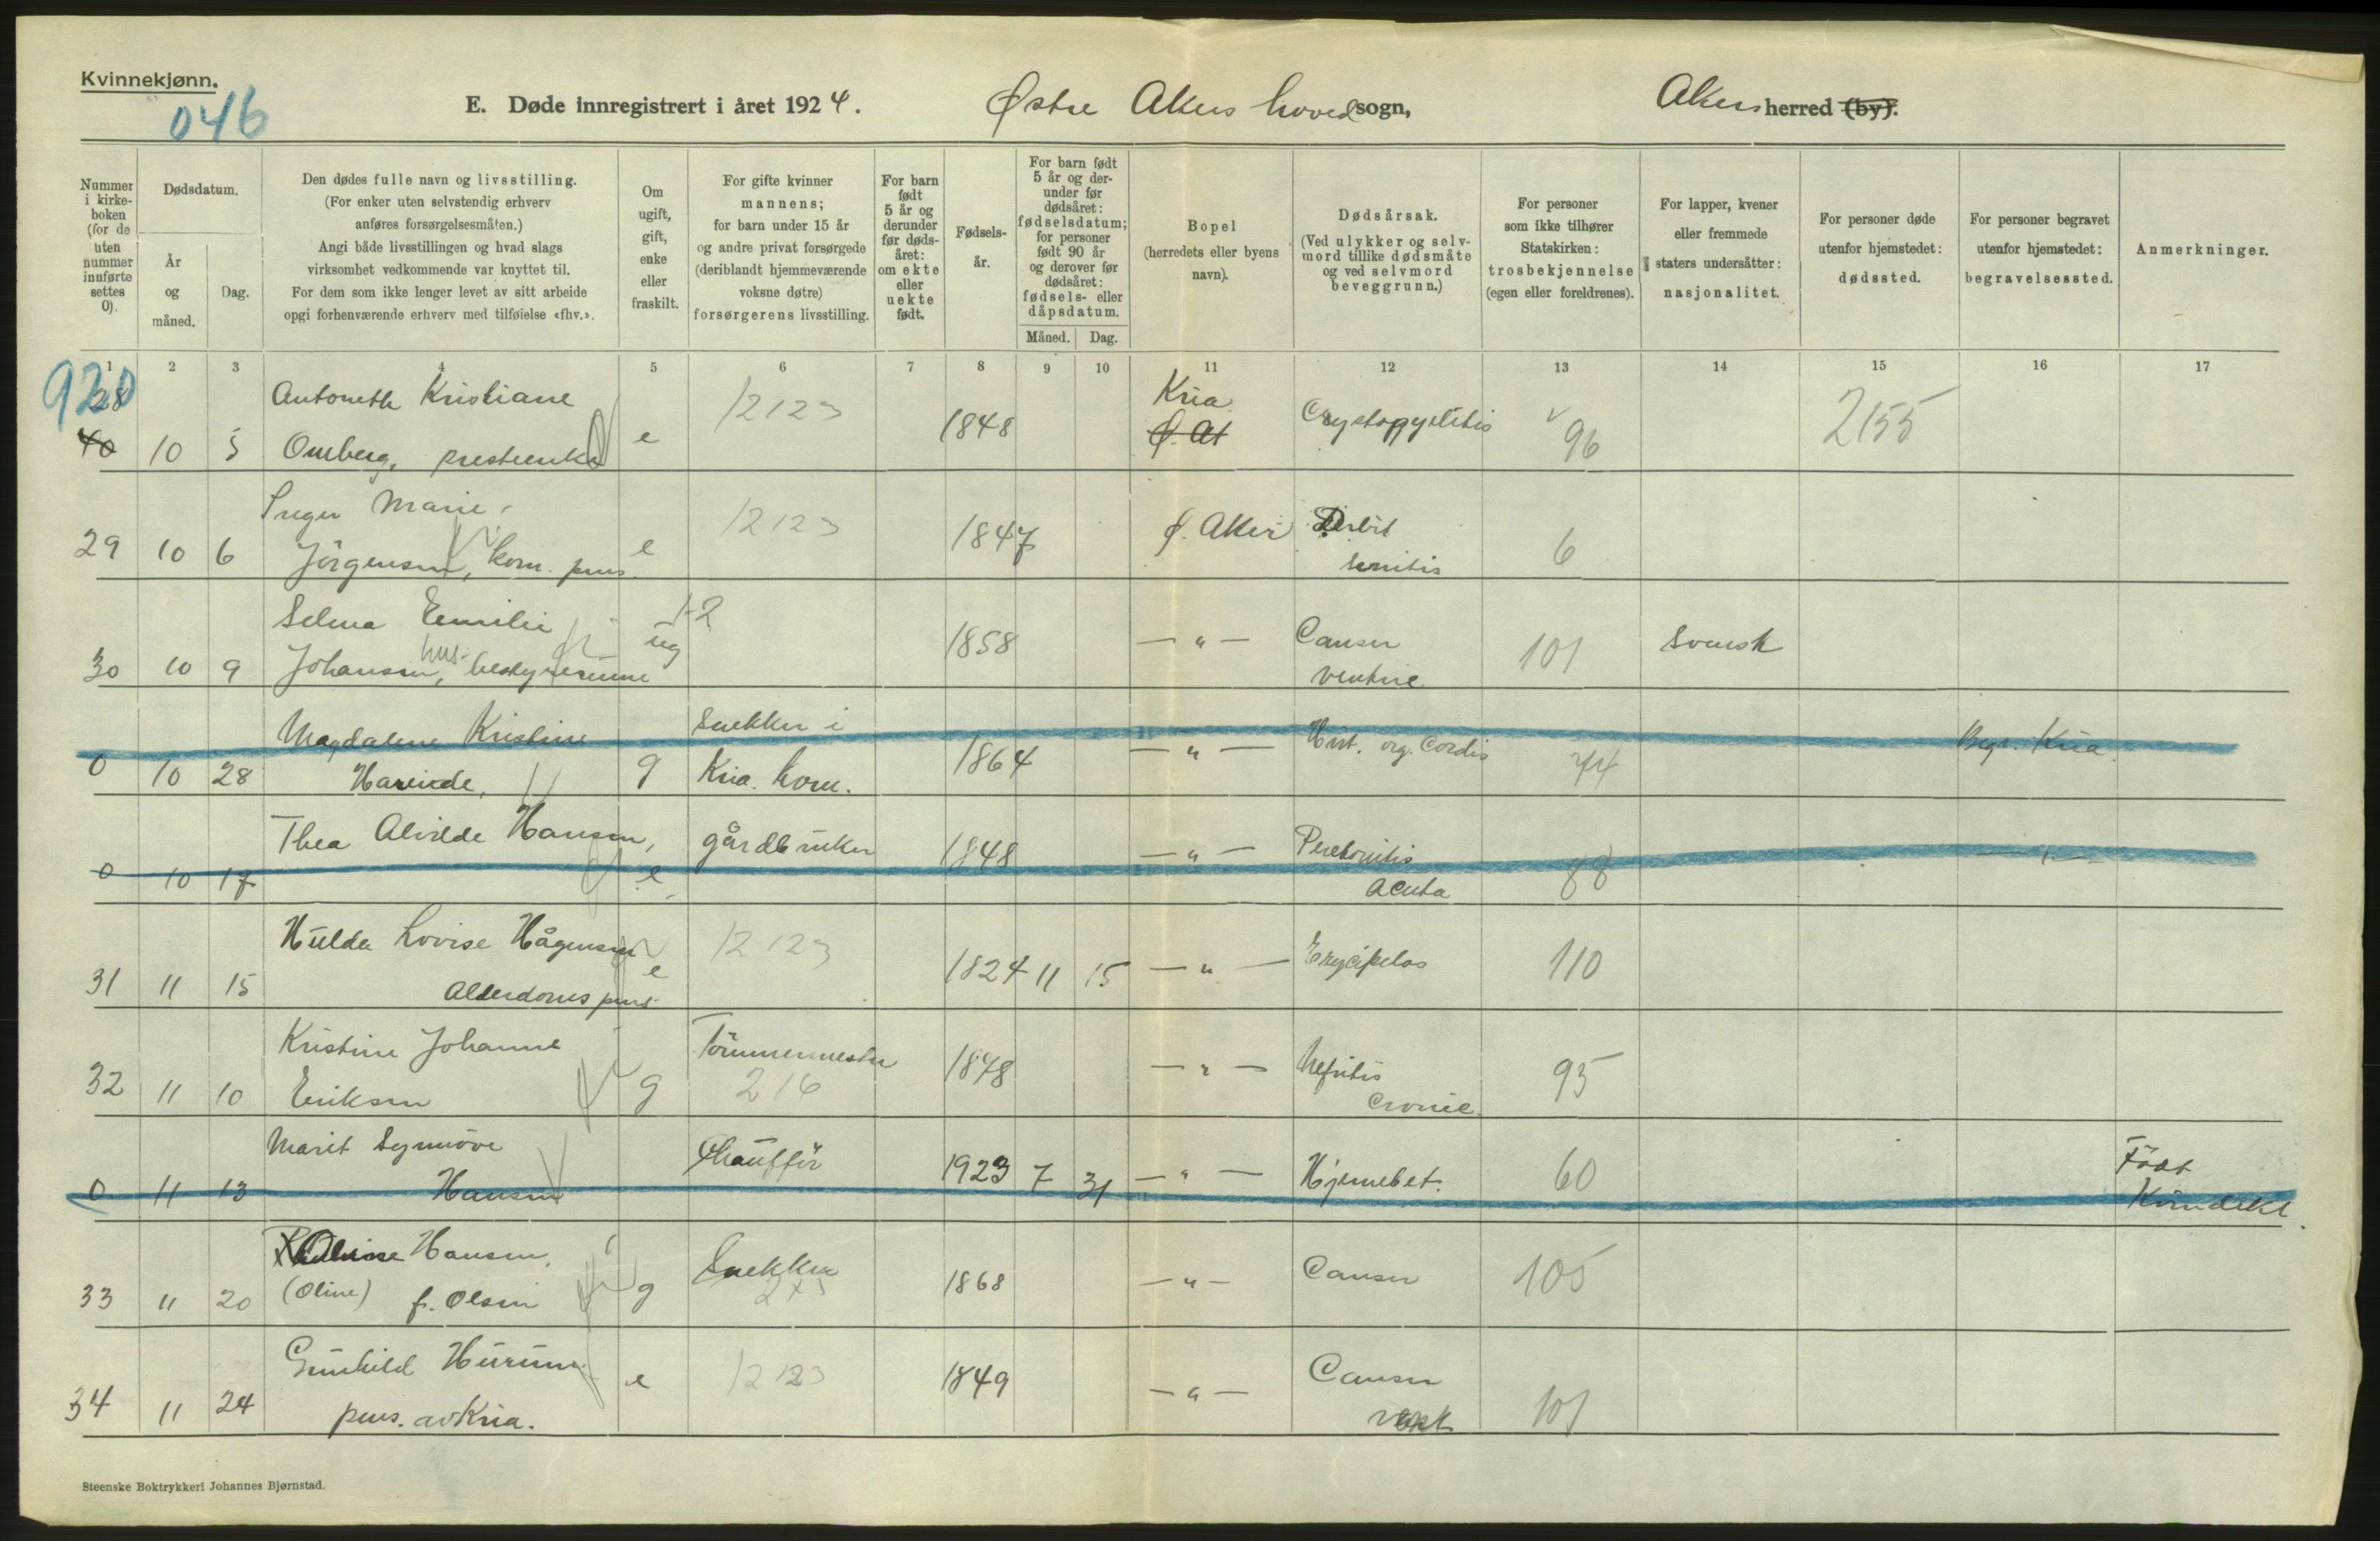 Kvinnekjønn.
046
E. Døde innregistrert i året 1924. Østre Akers hovedsogn, Akers herred (by).
Nummer i kirke-boken (for de uten nummer innførte settes 0).
Dødsdatum.
År og måned.
Dag.
Den dødes fulle navn og livsstilling.
(For enker uten selvstendig erhverv
anføres forsørgelsesmåten.)
Angi både livsstillingen og hvad slags
virksomhet vedkommende var knyttet til.
For dem som ikke lenger levet av sitt arbeide
opgi forhenværende erhverv med tilføielse «fhv.».
Om ugift, gift, enke eller fraskilt.
For gifte kvinner
mannens;
for barn under 15 år
og andre privat forsørgede
(deriblandt hjemmeværende
voksne døtre)
forsørgerens livsstilling.
For barn født 5 år og derunder før døds-året: om ekte eller uekte født.
Fødsels-år.
For barn født
5 år og der-
under før
dødsåret:
fødselsdatum;
for personer
født 90 år
og derover før
dødsåret:
fødsels- eller
dåpsdatum.
Måned. Dag.
Bopel
(herredets eller byens
navn).
Dødsårsak.
(Ved ulykker og selv-
mord tillike dødsmåte
og ved selvmord
beveggrunn.)
For personer
som ikke tilhører
Statskirken:
trosbekjennelse
(egen eller foreldrenes).
For lapper, kvener
eller fremmede
staters undersåtter:
nasjonalitet.
For personer døde
utenfor hjemstedet:
dødssted.
For personer begravet
utenfor hjemstedet:
begravelsessted.
Anmerkninger.
1 2 3 4 5 6 7 8 9 10 11 12 13 14 15 16 17
920
28 Antonette Kristiane 12123 Kria
40 10 5 Omberg, presteenke e 1848 Ø. At 96 2155
Inger Marie 12123
29 10 6 Jörgensen, kom. pens. e 1847 Ø. Aker Debil senitis 6
Selma Emilie 12
30 10 9 Johansen, hus-bestyrerinne ug 1858 — " — Canser ventric 101 Svensk
Magdalene Kristine Snekker i
0 10 28 g Kria. kom. 1864 — " — org. Cordis 74 Begr. Kria.
Thea Alvilde Hansen, gårdbruker
0 10 17 e 1848 — " — Peretonitis acuta 88 — " —
Hulda Lovise Hågensen 12123
31 11 15 Alderdoms pens. e 1824 11 15 — " — Erycipelas 110
Kristine Johanne Tömmermester
32 11 10 Eriksen g 216 1848 — " — Nefritis Cronic. 95
Marit Synnöve Chaufför Födt
0 11 13 Hansen 1923 7 31 — " — Hjernebet. 60
Oline Hansen, Snekker
33 11 20 (Oline) f. Olsen g 1868 — " — Canser 105
Gunhild Hurum 12123
34 11 24 pens. av Kria. e 1849 — " — Canser 101
Steenske Boktrykkeri Johannes Bjørnstad.